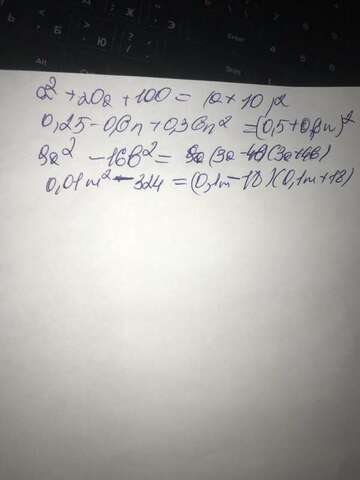 a² + 20a + 100 = (a + 10)²
0,25 - 0,6n + 0,36n² = (0,5 + 0,6n)²
9a² - 16b² = (3a - 4b)(3a + 4b)
0,01m² - 324 = (0,1m - 18)(0,1m + 18)